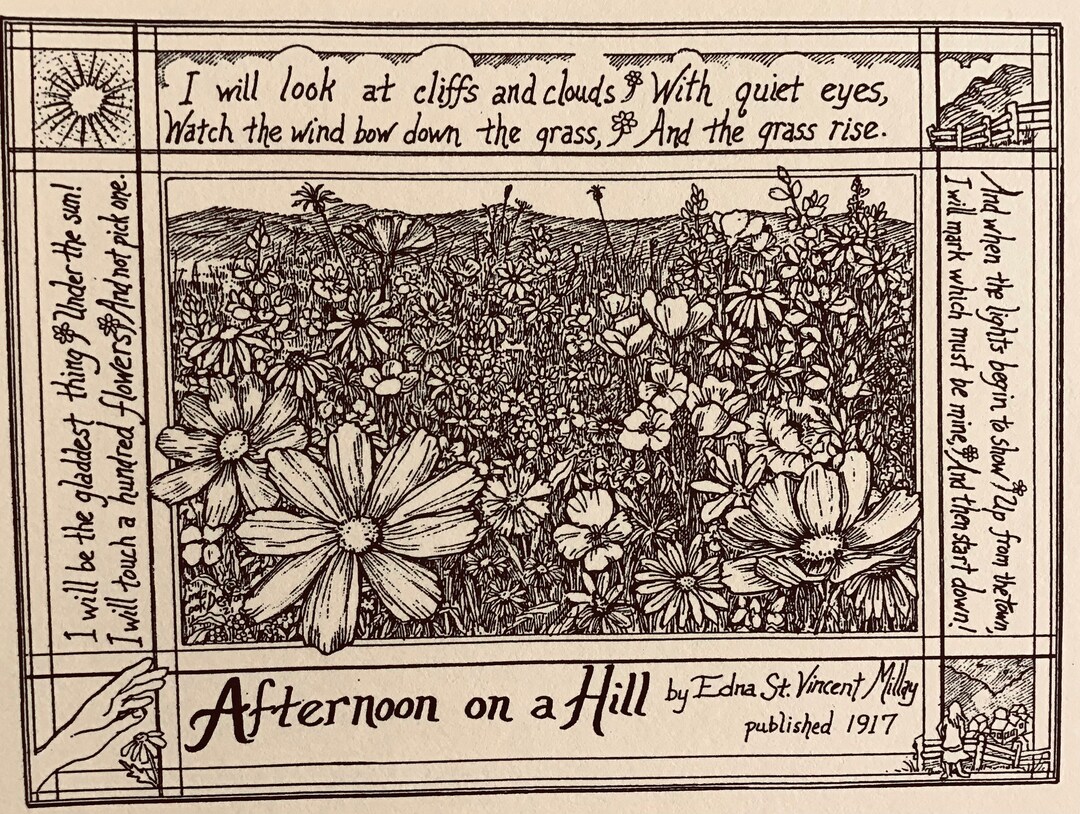 I will be the gladdest thing Under the sun!
I will touch a hundred flowers, And not pick one.
I will look at cliffs and clouds With quiet eyes,
Watch the wind bow down the grass, And the grass rise.
And when the lights begin to show Up from the town,
I will mark which must be mine, And then start down!
Afternoon on a Hill by Edna St. Vincent Millay
published 1917